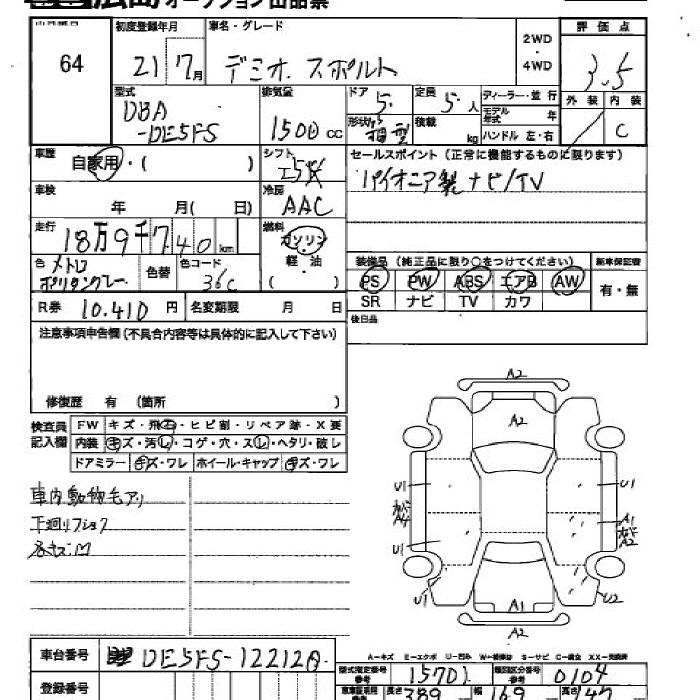 オークション出品票
64
初度登録年月
21 7月
車名・グレード
デミオ スポルト
2WD
・
4WD
評価点
3.5
外装 内装
C
型式
DBA
-DE5FS
排気量
1500 cc
ドア
5
定員
5人
形状
積載
kg
ディーラー・並行
モデル年式 年
ハンドル 左・右
車歴
自家用・( )
シフト
セールスポイント(正常に機能するものに限ります)
パイオニア製ナビ/TV
車検
年 月( 日)
冷房
AAC
走行
18万9千740km
燃料
ガソリン
軽・油
( )
色 メトロ
ポリタングレー
色替
色コード
36C
装備品(純正品に限り○をつけてください)
新車保証書
PS PW ABS エアB AW
有・無
SR ナビ TV カワ
R券 10.410円
名変期限 月 日
後日品
注意事項申告欄(不具合内容等は具体的に記入して下さい)
修復歴 有 (箇所 )
検査員
記入欄
FW キズ・飛石・ヒビ割・リペア跡・X要
内装 キズ・汚れ・コゲ・穴・スレ・ヘタリ・破レ
ドアミラー キズ・ワレ ホイール・キャップ キズ・ワレ
車内動物毛アリ
下廻リフショク
各キズ凹
A2
A2
U1
U1
A4
A1
A2
U1
U1
U2
A1
A2
A-キズ E-エクボ U-凹み W-補修跡 S-サビ C-腐食 XX-交換済
車台番号
DE5FS-122120
登録番号
型式指定番号
参考
15701
類別区分番号
参考
0104
長さ
389
幅
169
高さ
147